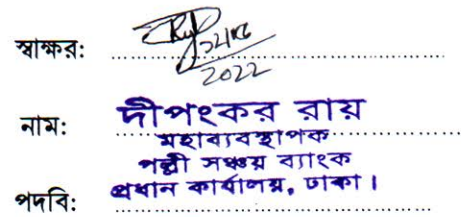 স্বাক্ষর:
2022
নাম: দীপংকর রায়
মহাব্যবস্থাপক
পল্লী সঞ্চয় ব্যাংক
পদবি: প্রধান কার্যালয়, ঢাকা।